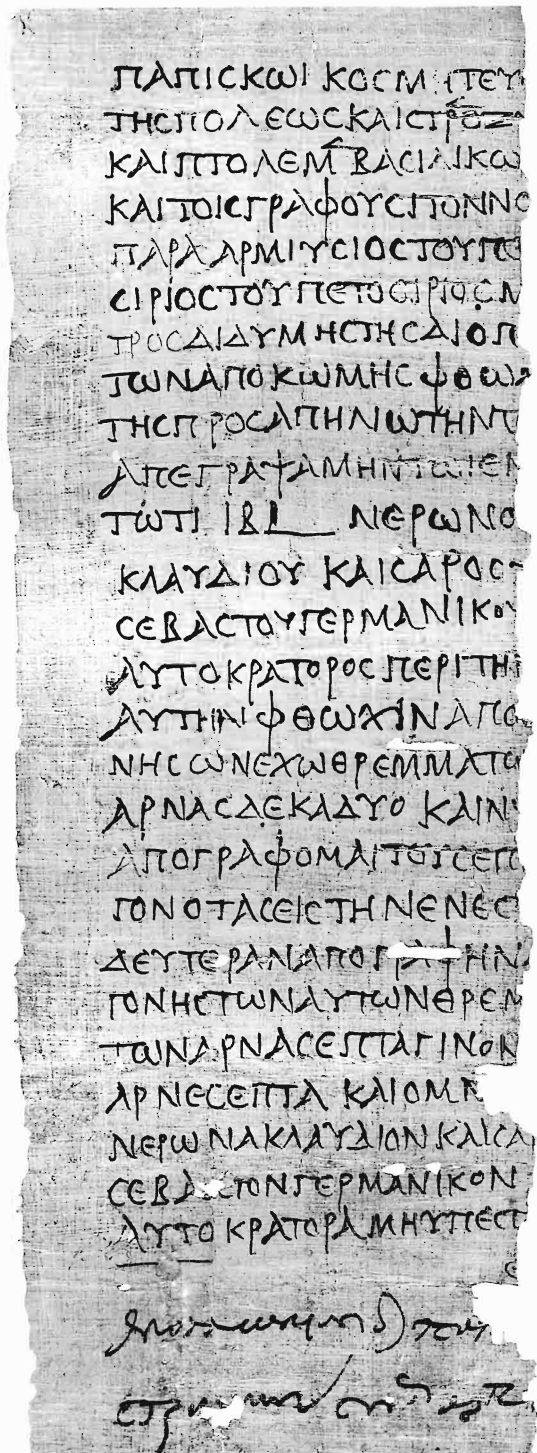 ΠΑΠΙCΚΩΙ ΚΟCΜΗΤΕΥ
ΤΗCΠΟΛΕΩCΚΑΙCΤΡΟ
ΚΑΙΠΤΟΛΕΜ ΒΑCΙΛΙΚΩ
ΚΑΙΤΟΙCΓΡΑΦΟΥCΙΤΟΝΝΟ
ΠΑΡΑΑΡΜΙΥCΙΟCΤΟΥΠΕ
CΙΡΙΟCΤΟΥΠΕΤΟCΙΡΙΟCΜ
ΤΡΟCΔΙΔΥΜΗCΤΗCΔΙΟΠ
ΤΩΝΑΠΟΚΩΜΗCΦΘΩΧ
ΤΗCΠΡΟCΑΠΗΛΙΩΤΗΝΤ
ΑΠΕΓΡΑΨΑΜΗΝΤΩΙΕΝ
ΤΩΤΙ ΙΒL ΝΕΡΩΝΟ
ΚΛΑΥΔΙΟΥ ΚΑΙCΑΡΟC
CΕΒΑCΤΟΥΓΕΡΜΑΝΙΚΟΥ
ΑΥΤΟΚΡΑΤΟΡΟCΠΕΡΙΤΗ
ΑΥΤΗΝΦΘΩΧΙΝΑΠΟ
ΝΗCΩΝΕΧΩΘΡΕΜΜΑΤΩ
ΑΡΝΑCΔΕΚΑΔΥΟ ΚΑΙΝ
ΑΠΟΓΡΑΦΟΜΑΙΤΟΥCΕΠ
ΓΟΝΟΤΑCΕΙCΤΗΝΕΝΕC
ΔΕΥΤΕΡΑΝΑΠΟΓΡΑΦΗΝ
ΓΟΝΗCΤΩΝΑΥΤΩΝΘΡΕΜ
ΤΩΝΑΡΝΑCΕΠΤΑΓΙΝΟΝ
ΑΡΝΕCΕΠΤΑ ΚΑΙΟΜ
ΝΕΡΩΝΑΚΛΑΥΔΙΟΝΚΑΙCΑ
CΕΒΑCΤΟΝΓΕΡΜΑΝΙΚΟΝ
ΑΥΤΟΚΡΑΤΟΡΑΜΗΥΠΕCΤ